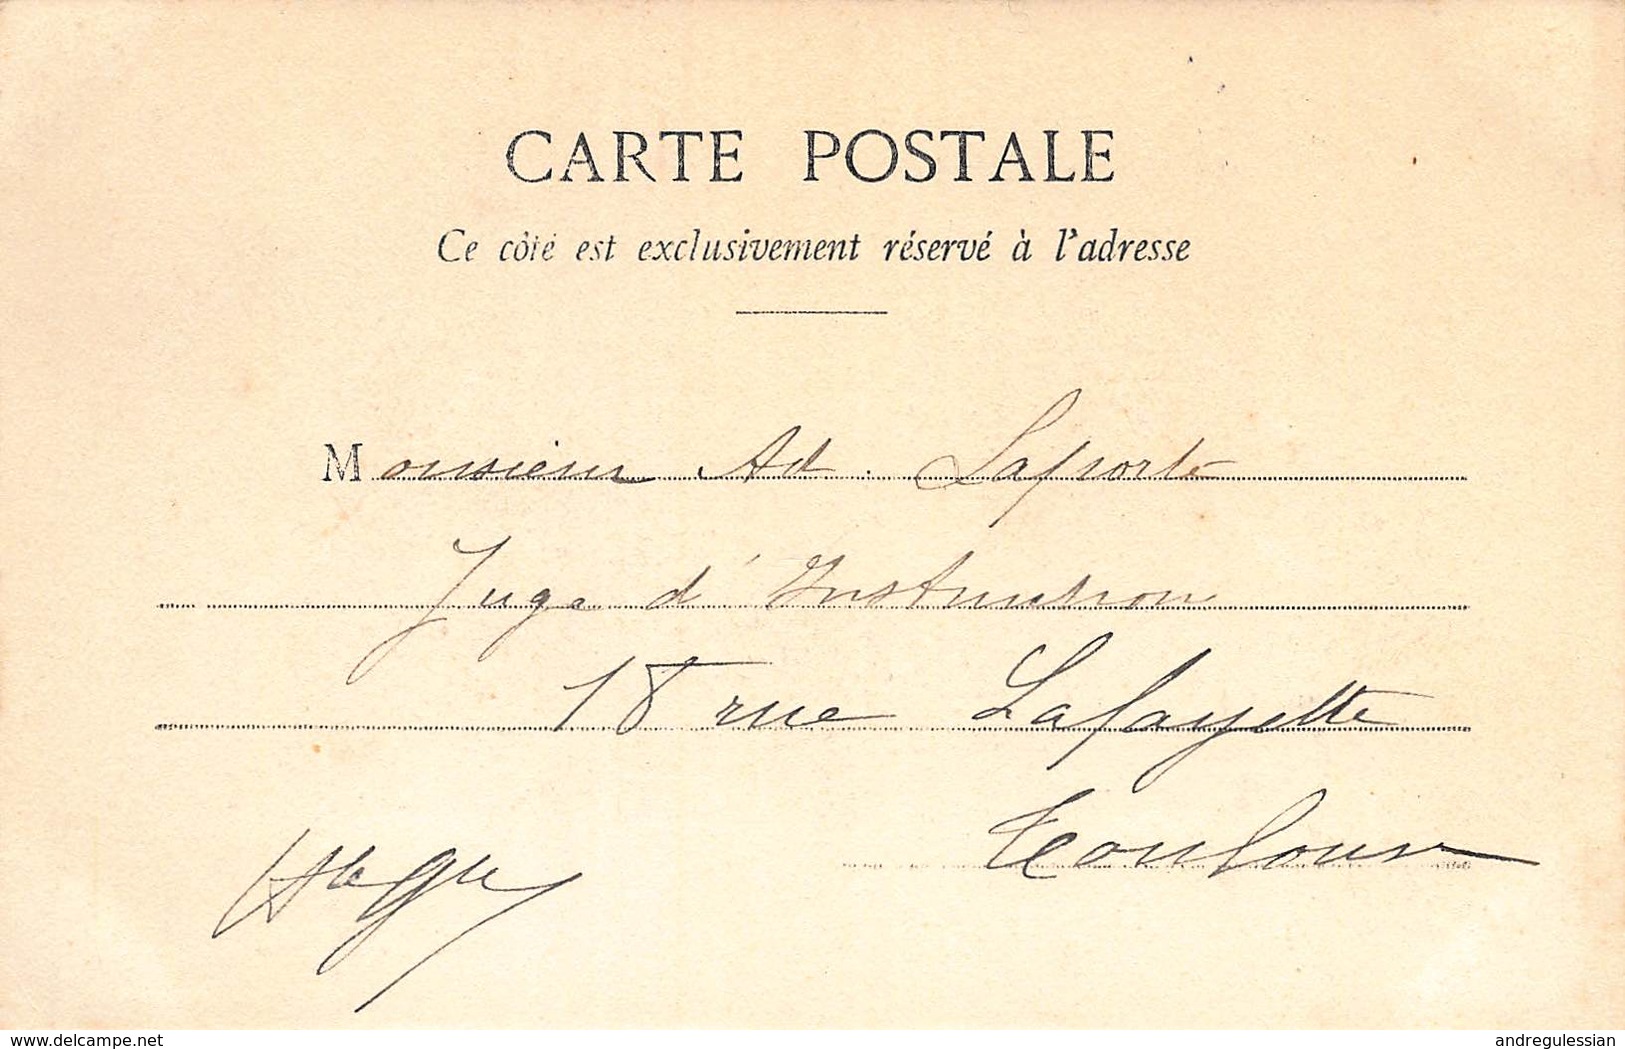 CARTE POSTALE
Ce côté est exclusivement réservé à l'adresse
Monsieur Ad. Laporte
Juge d'Instruction
18 rue Lafayette
Toulouse
Hte Gne
delcampe.net
andregulessian